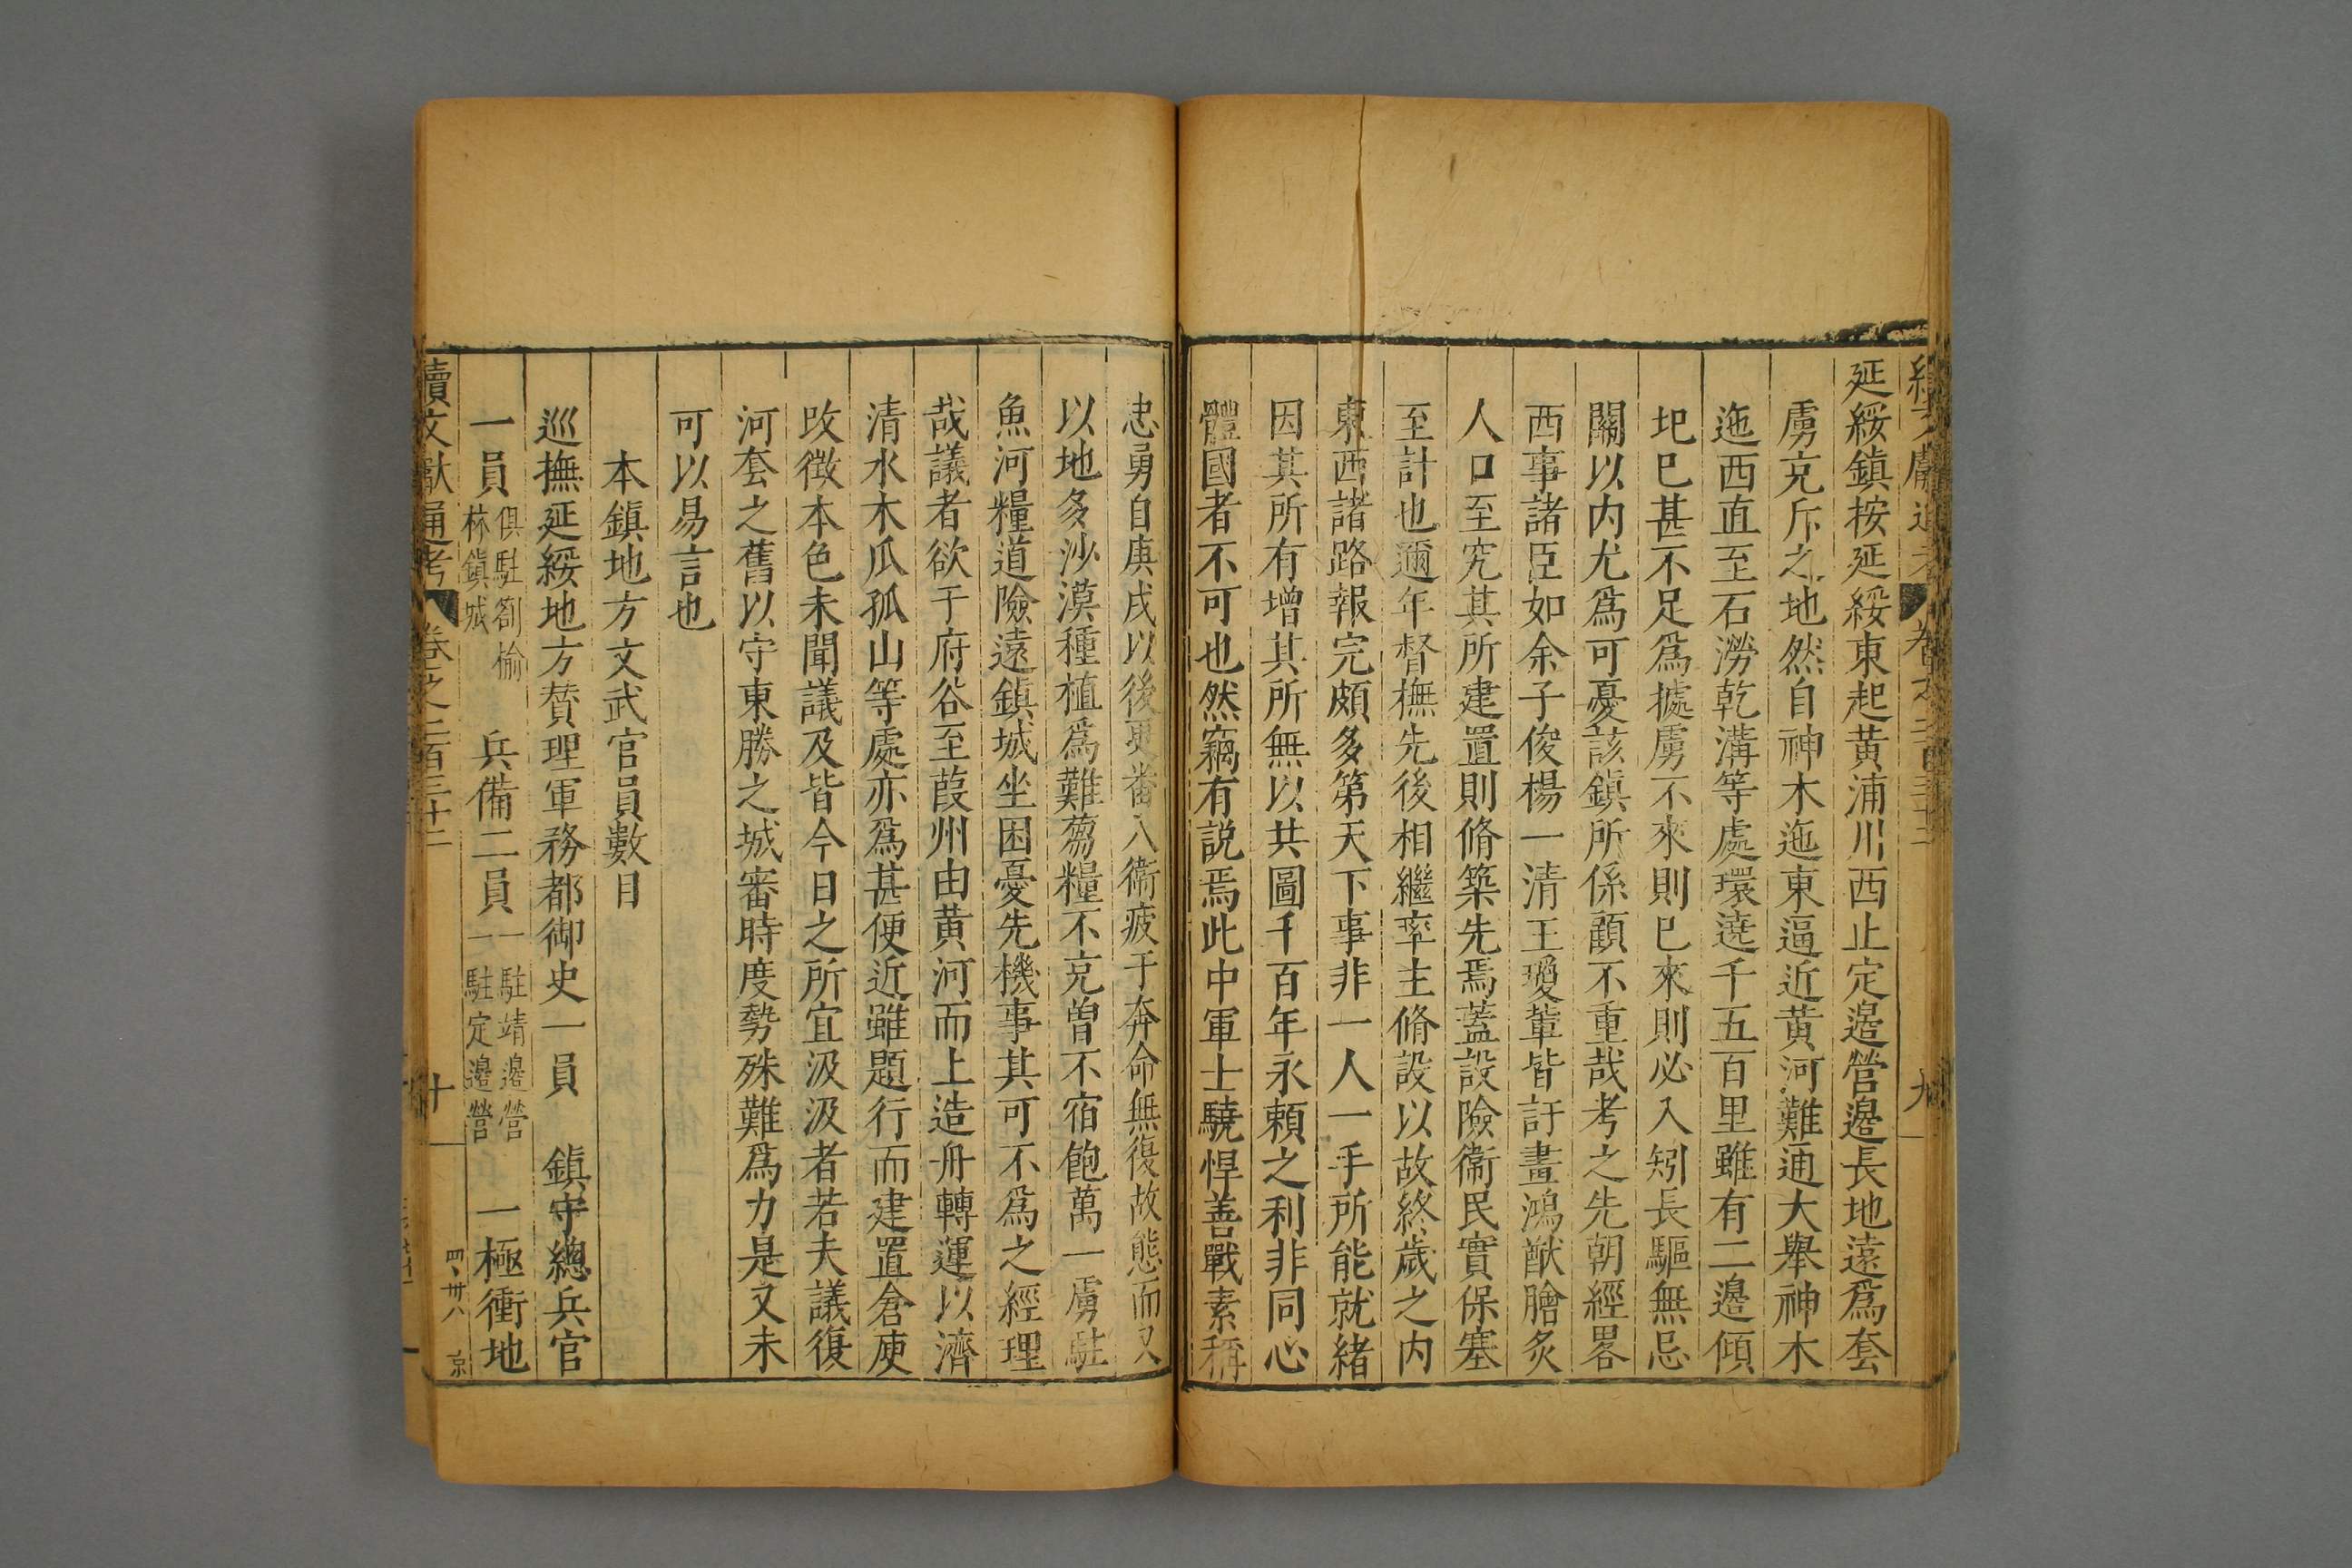 延綏鎮按延綏東起黄浦川西止定邉營邉長地遠爲套
虜充斥之地然自神木迤東逼近黄河難通大舉神木
迤西直至石澇乾溝等處環遶千五百里雖有二邉傾
圯巳甚不足爲據虜不來則巳來則必入矧長驅無忌
關以内尤爲可憂該鎮所係顧不重哉考之先朝經畧
西事諸臣如余子俊楊一清王瓊輩皆訏畫鴻猷膾炙
人口至究其所建置則脩築先焉蓋設險衞民實保塞
至計也邇年督撫先後相繼率主脩設以故終歲之内
東西諸路報完頗多第天下事非一人一手所能就緒
因其所有增其所無以共圖千百年永頼之利非同心
體國者不可也然竊有説焉此中軍士驍悍善戰素稱
忠勇自庚戌以後更番入衞疲于奔命無復故態而又
以地多沙漠種植爲難芻糧不充曽不宿飽萬一虜駐
魚河糧道險遠鎮城坐困憂先機事其可不爲之經理
哉議者欲于府谷至葭州由黄河而上造舟轉運以濟
清水木瓜孤山等處亦爲甚便近雖題行而建置倉庾
攺徴本色未聞議及皆今日之所宜汲汲者若夫議復
河套之舊以守東勝之城審時度勢殊難爲力是又未
可以易言也
本鎮地方文武官員數目
巡撫延綏地方賛理軍務都御史一員　鎮守總兵官
一員俱駐劄榆林鎮城　兵備二員一駐靖邉營一駐定邉營　一極衝地
續文獻通考　卷之二百三十二　十
四、卅八　京